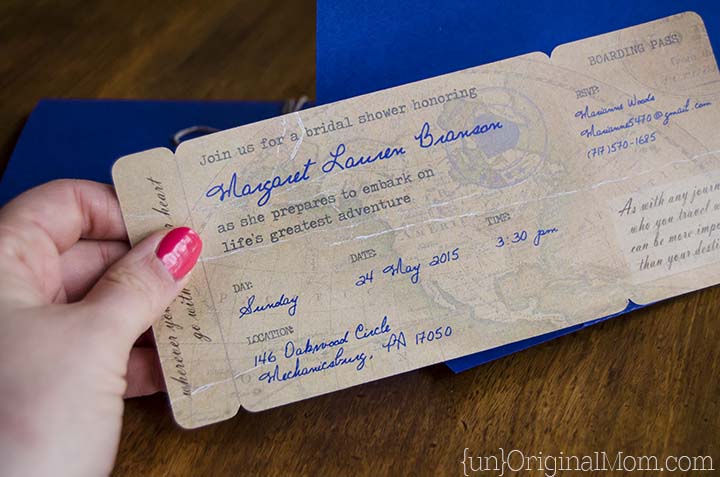 wherever you
go with
heart
Join us for a bridal shower honoring
Margaret Lauren Branson
as she prepares to embark on
life's greatest adventure
DAY:
Sunday
DATE:
24 May 2015
TIME:
3:30 pm
LOCATION:
146 Oakwood Circle
Mechanicsburg, PA 17050
BOARDING PASS
RSVP:
Marianne Woods
Marianne5470@gmail.com
(717)570-1685
As with any journ
who you travel w
can be more impo
than your desti
{un}OriginalMom.com